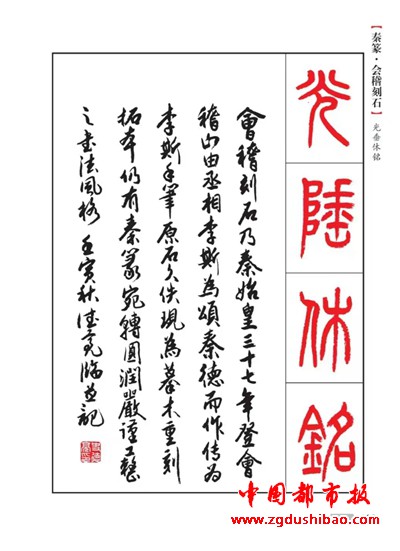 【秦篆·会稽刻石】光垂休铭
光陲休銘
會稽刻石乃秦始皇三十七年登會
稽山由丞相李斯為頌秦德而作传為
李斯手筆原石久佚現為摹本重刻
拓本仍有秦篆宛轉圓潤嚴谨工整
之書法風格 壬寅秋臨並記
中国都市报
www.zgdushibao.com